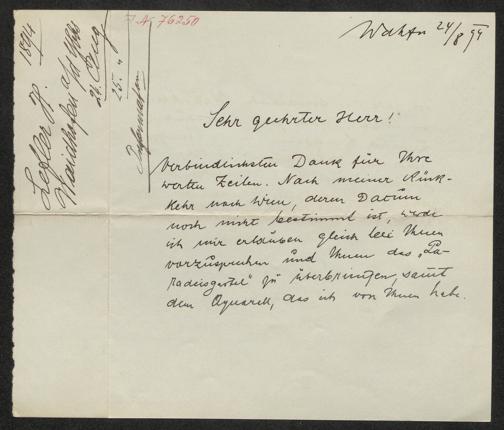 A 76250
Wdhfn 24/8 94
Legler H. 1894
Waidhofen a/d Ybbs
24. Aug
25. "
Sehr geehrter Herr!
Verbindlichsten Dank für Ihre
werten Zeilen. Nach meiner Rück-
kehr nach Wien, deren Datum
noch nicht bestimmt ist, werde
ich mir erlauben gleich bei Ihnen
vorzusprechen und Ihnen das „Pa-
radeisgartel“ zu überbringen, samt
dem Aquarell, das ich von Ihnen habe.